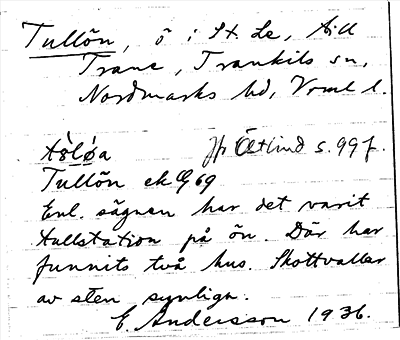 Tullön, ö i St. Le, till
Trane, Trankils sn,
Nordmarks hd, Vrml l.
Jfr Ortlind s. 99 f.
Tullön ek G 69
Enl. sägnen har det varit
tullstation på ön. Där har
funnits två hus. Skottvallar
av sten synliga.
E. Andersson 1936.